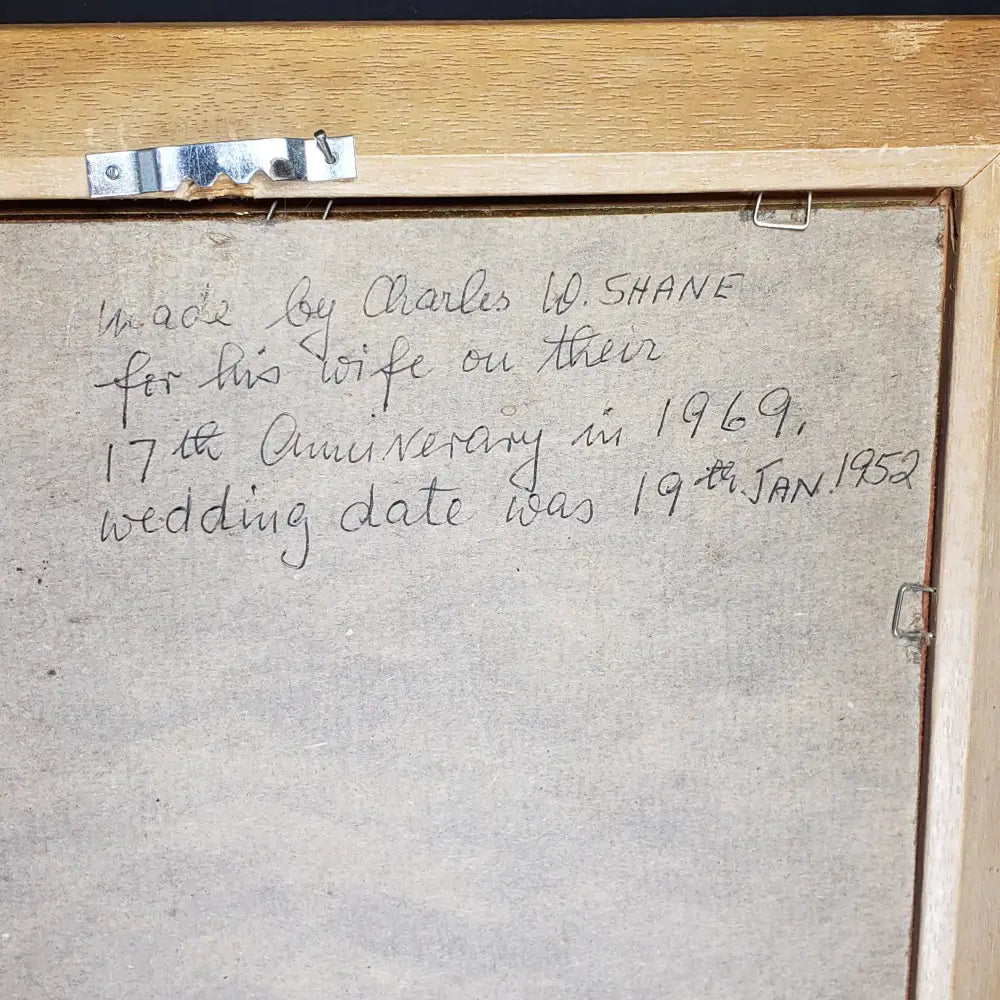 made by Charles W. SHANE
for his wife on their
17th Anniverary in 1969,
wedding date was 19th. JAN. 1952